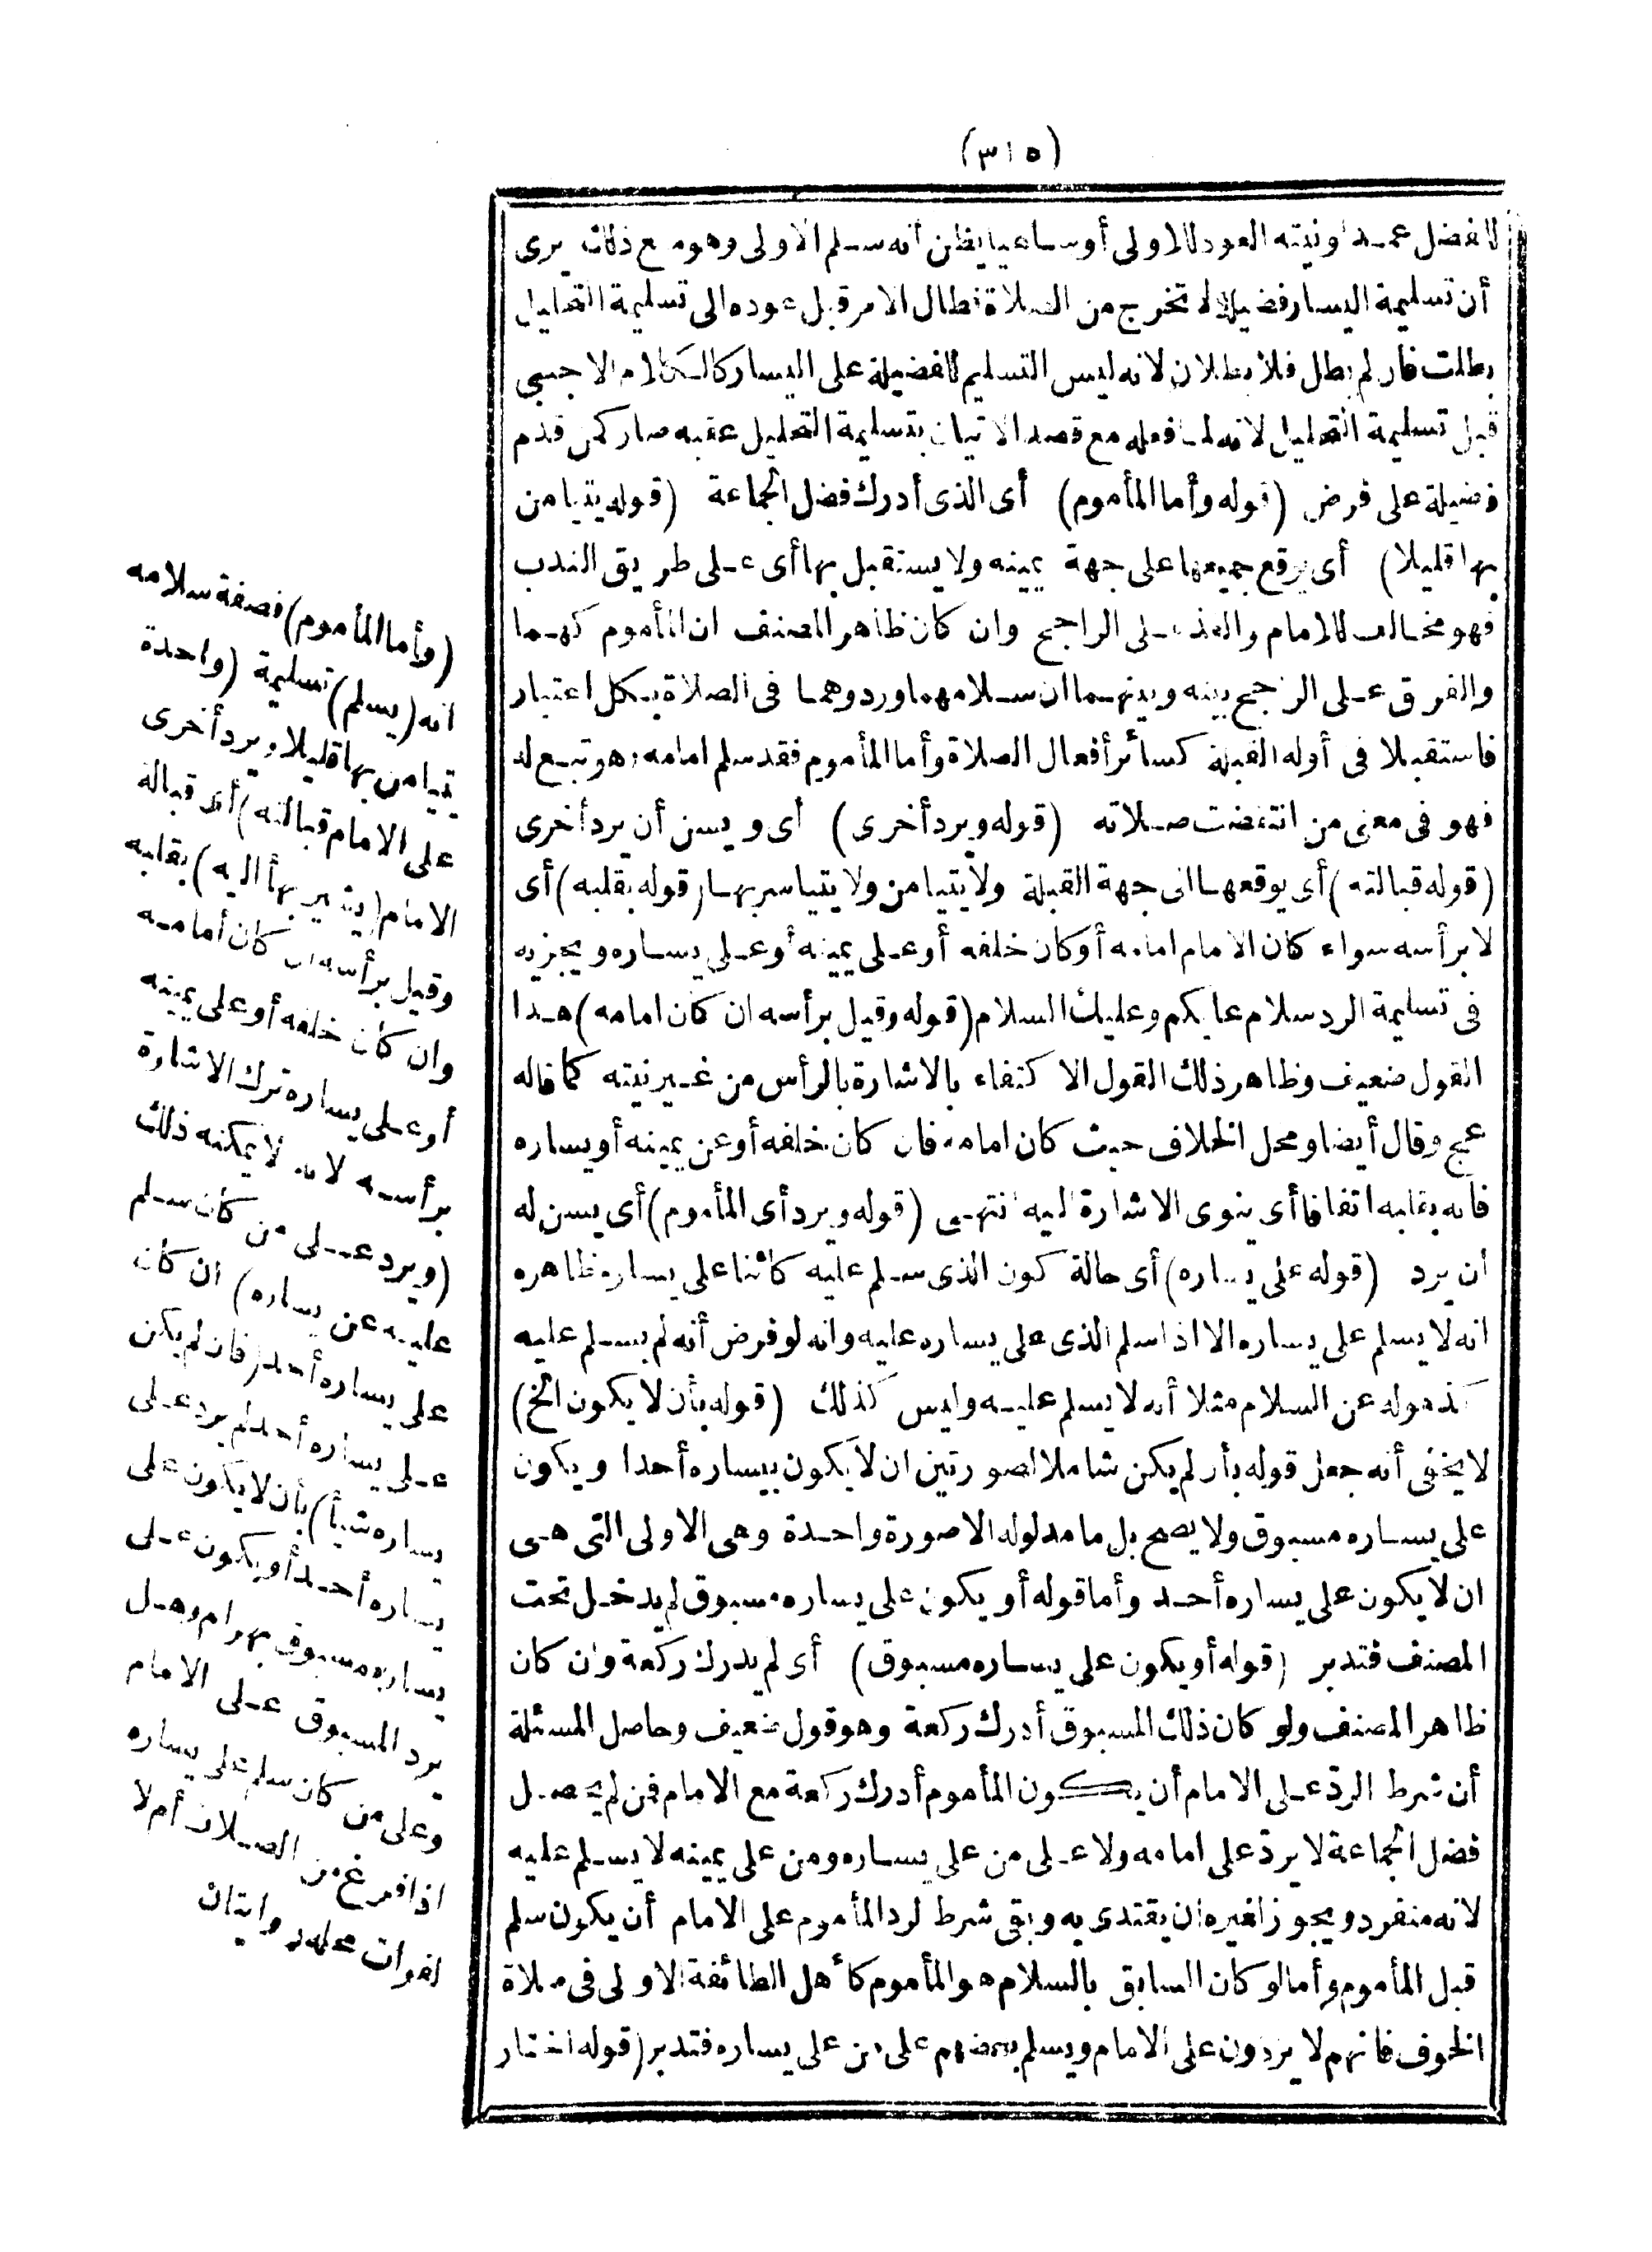 (٣١٥)
للفضل عمدا ونيته العود للاولى أو ساهيا يظن أنه سلم الاولى وهو مع ذلك يرى
أن تسليمة اليسار فضيلة لا تخرج من الصلاة فطال الامر قبل عوده الى تسليمة التحليل
بطلت فان لم يطل فلا بطلان لانه ليس التسليم للفضيلة على اليسار كالكلام الاجنبى
قبل تسليمة التحليل لانه لما فعله مع قصد الاتيان بتسليمة التحليل عقبه صار كمن قدم
فضيلة على فرض (قوله وأما المأموم) أى الذى أدرك فضل الجماعة (قوله يتيامن
بها قليلا) أى يوقع جميعها على جهة يمينه ولا يستقبل بها أى على طريق الندب
فهو مخالف للامام والفذ على الراجح وان كان ظاهر المصنف ان المأموم كهما
والفرق على الراجح بينه وبينهما ان سلامهما وردوهما فى الصلاة بكل اعتبار
فاستقبلا فى أوله القبلة كسائر أفعال الصلاة وأما المأموم فقد سلم امامه وهو تبع له
فهو فى معنى من انقضت صلاته (قوله ويرد أخرى) أى ويسن أن يرد أخرى
(قوله قبالته) أى يوقعها الى جهة القبلة ولا يتيامن ولا يتياسر بها (قوله بقلبه) أى
لا برأسه سواء كان الامام امامه أو كان خلفه أو على يمينه أو على يساره ويجزيه
فى تسليمة الرد سلام عليكم وعليك السلام (قوله وقيل برأسه ان كان امامه) هذا
القول ضعيف وظاهر ذلك القول الاكتفاء بالاشارة بالرأس من غير نيته كما قاله
عج وقال أيضا ومحل الخلاف حيث كان امامه فان كان خلفه أو عن يمينه أو يساره
فانه بقلبه اتفاقا أى ينوى الاشارة اليه انتهى (قوله ويرد أى المأموم) أى يسن له
أن يرد (قوله على يساره) أى حالة كون الذى سلم عليه كائنا على يساره ظاهره
انه لا يسلم على يساره الا اذا سلم الذى على يساره عليه وانه لو فرض أنه لم يسلم عليه
كذهوله عن السلام مثلا أنه لا يسلم عليه وليس كذلك (قوله بأن لا يكون الخ)
لا يخفى أنه جعل قوله بأن لم يكن شاملا لصورتين ان لا يكون بيساره أحدا ويكون
على يساره مسبوق ولا يصح بل ما مدلوله الا صورة واحدة وهى الاولى التى هى
ان لا يكون على يساره أحد وأما قوله أو يكون على يساره مسبوق لم يدخل تحت
المصنف فتدبر (قوله أو يكون على يساره مسبوق) أى لم يدرك ركعة وان كان
ظاهر المصنف ولو كان ذلك المسبوق أدرك ركعة وهو قول ضعيف وحاصل المسئلة
أن شرط الرد على الامام أن يكون المأموم أدرك ركعة مع الامام فمن لم يحصل
فضل الجماعة لا يرد على امامه ولا على من على يساره ومن على يمينه لا يسلم عليه
لانه منفرد ويجوز لغيره ان يقتدى به وبقى شرط لرد المأموم على الامام أن يكون سلم
قبل المأموم وأما لو كان السابق بالسلام هو المأموم كأهل الطائفة الاولى فى صلاة
الخوف فانهم لا يردون على الامام ويسلم بعضهم على من على يساره فتدبر (قوله اختار
(وأما المأموم) فصفة سلامه
انه (يسلم) تسليمة (واحدة
يتيامن بها قليلا ويرد أخرى
على الامام قبالته) أى قبالة
الامام (يشير بها اليه) بقلبه
وقيل برأسه ان كان أمامه
وان كان خلفه أو على يمينه
أو على يساره ترك الاشارة
برأسه لانه لا يمكنه ذلك
(ويرد على من كان سلم
عليه عن يساره) ان كان
على يساره أحد (فان لم يكن
على يساره أحد لم يرد على
يساره شيأ) بأن لا يكون على
يساره أحد أو يكون على
يساره مسبوق بهرام وهل
يرد المسبوق على الامام
وعلى من كان سلم على يساره
اذا فرغ من الصلاة أم لا
لفوات محله روايتان